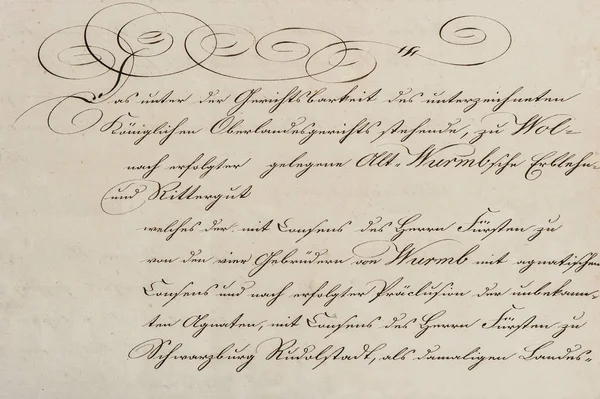 Das unter der Gerichtsbarkeit des unterzeichneten
Königlichen Oberlandesgerichts stehende, zu Wol-
nach erfolgter gelegene Alt-Wurmbsche Erblehn-
und Rittergut
welches der mit Consens des Herrn Fürsten zu
von den vier Gebrüdern von Wurmb mit agnatischem
Consens und nach erfolgter Präclusion der unbekann-
ten Agnaten, mit Consens des Herrn Fürsten zu
Schwarzburg Rudolstadt, als damaligen Landes-